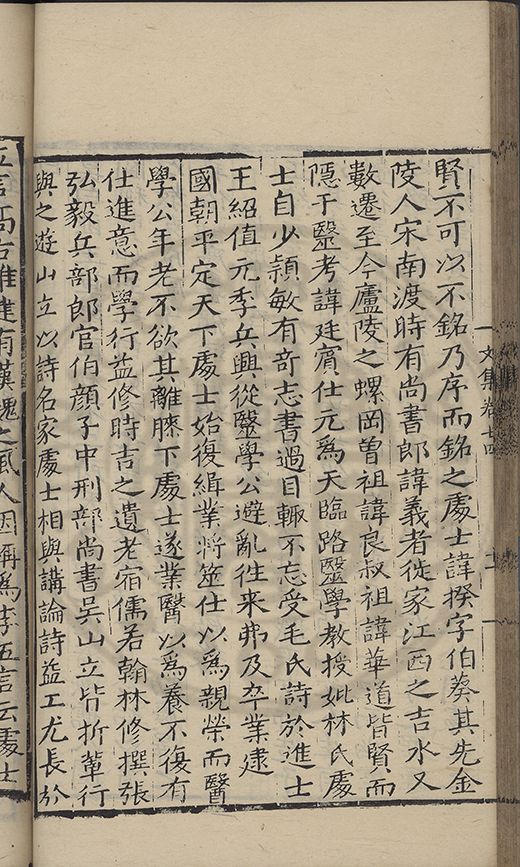 文集卷十四
賢不可以不銘乃序而銘之處士諱揆字伯葵其先金
陵人宋南渡時有尚書郎諱義者徙家江西之吉水又
數遷至今廬陵之螺岡曾祖諱良叔祖諱華道皆賢而
隱于毉考諱廷賓仕元爲天臨路毉學教授妣林氏處
士自少頴敏有竒志書過目輒不忘受毛氏詩於進士
王紹值元季兵興從毉學公避亂往来弗及卒業逮
國朝平定天下處士始復緝業將筮仕以爲親榮而醫
學公年老不欲其離膝下處士遂業醫以爲養不復有
仕進意而學行益修時吉之遺老宿儒若翰林修撰張
弘毅兵部郎官伯顔子中刑部尚書吳山立皆折輩行
與之遊山立以詩名家處士相與講論詩益工尤長於
五言高古雄健有漢魏之風人因稱爲李五言云處士